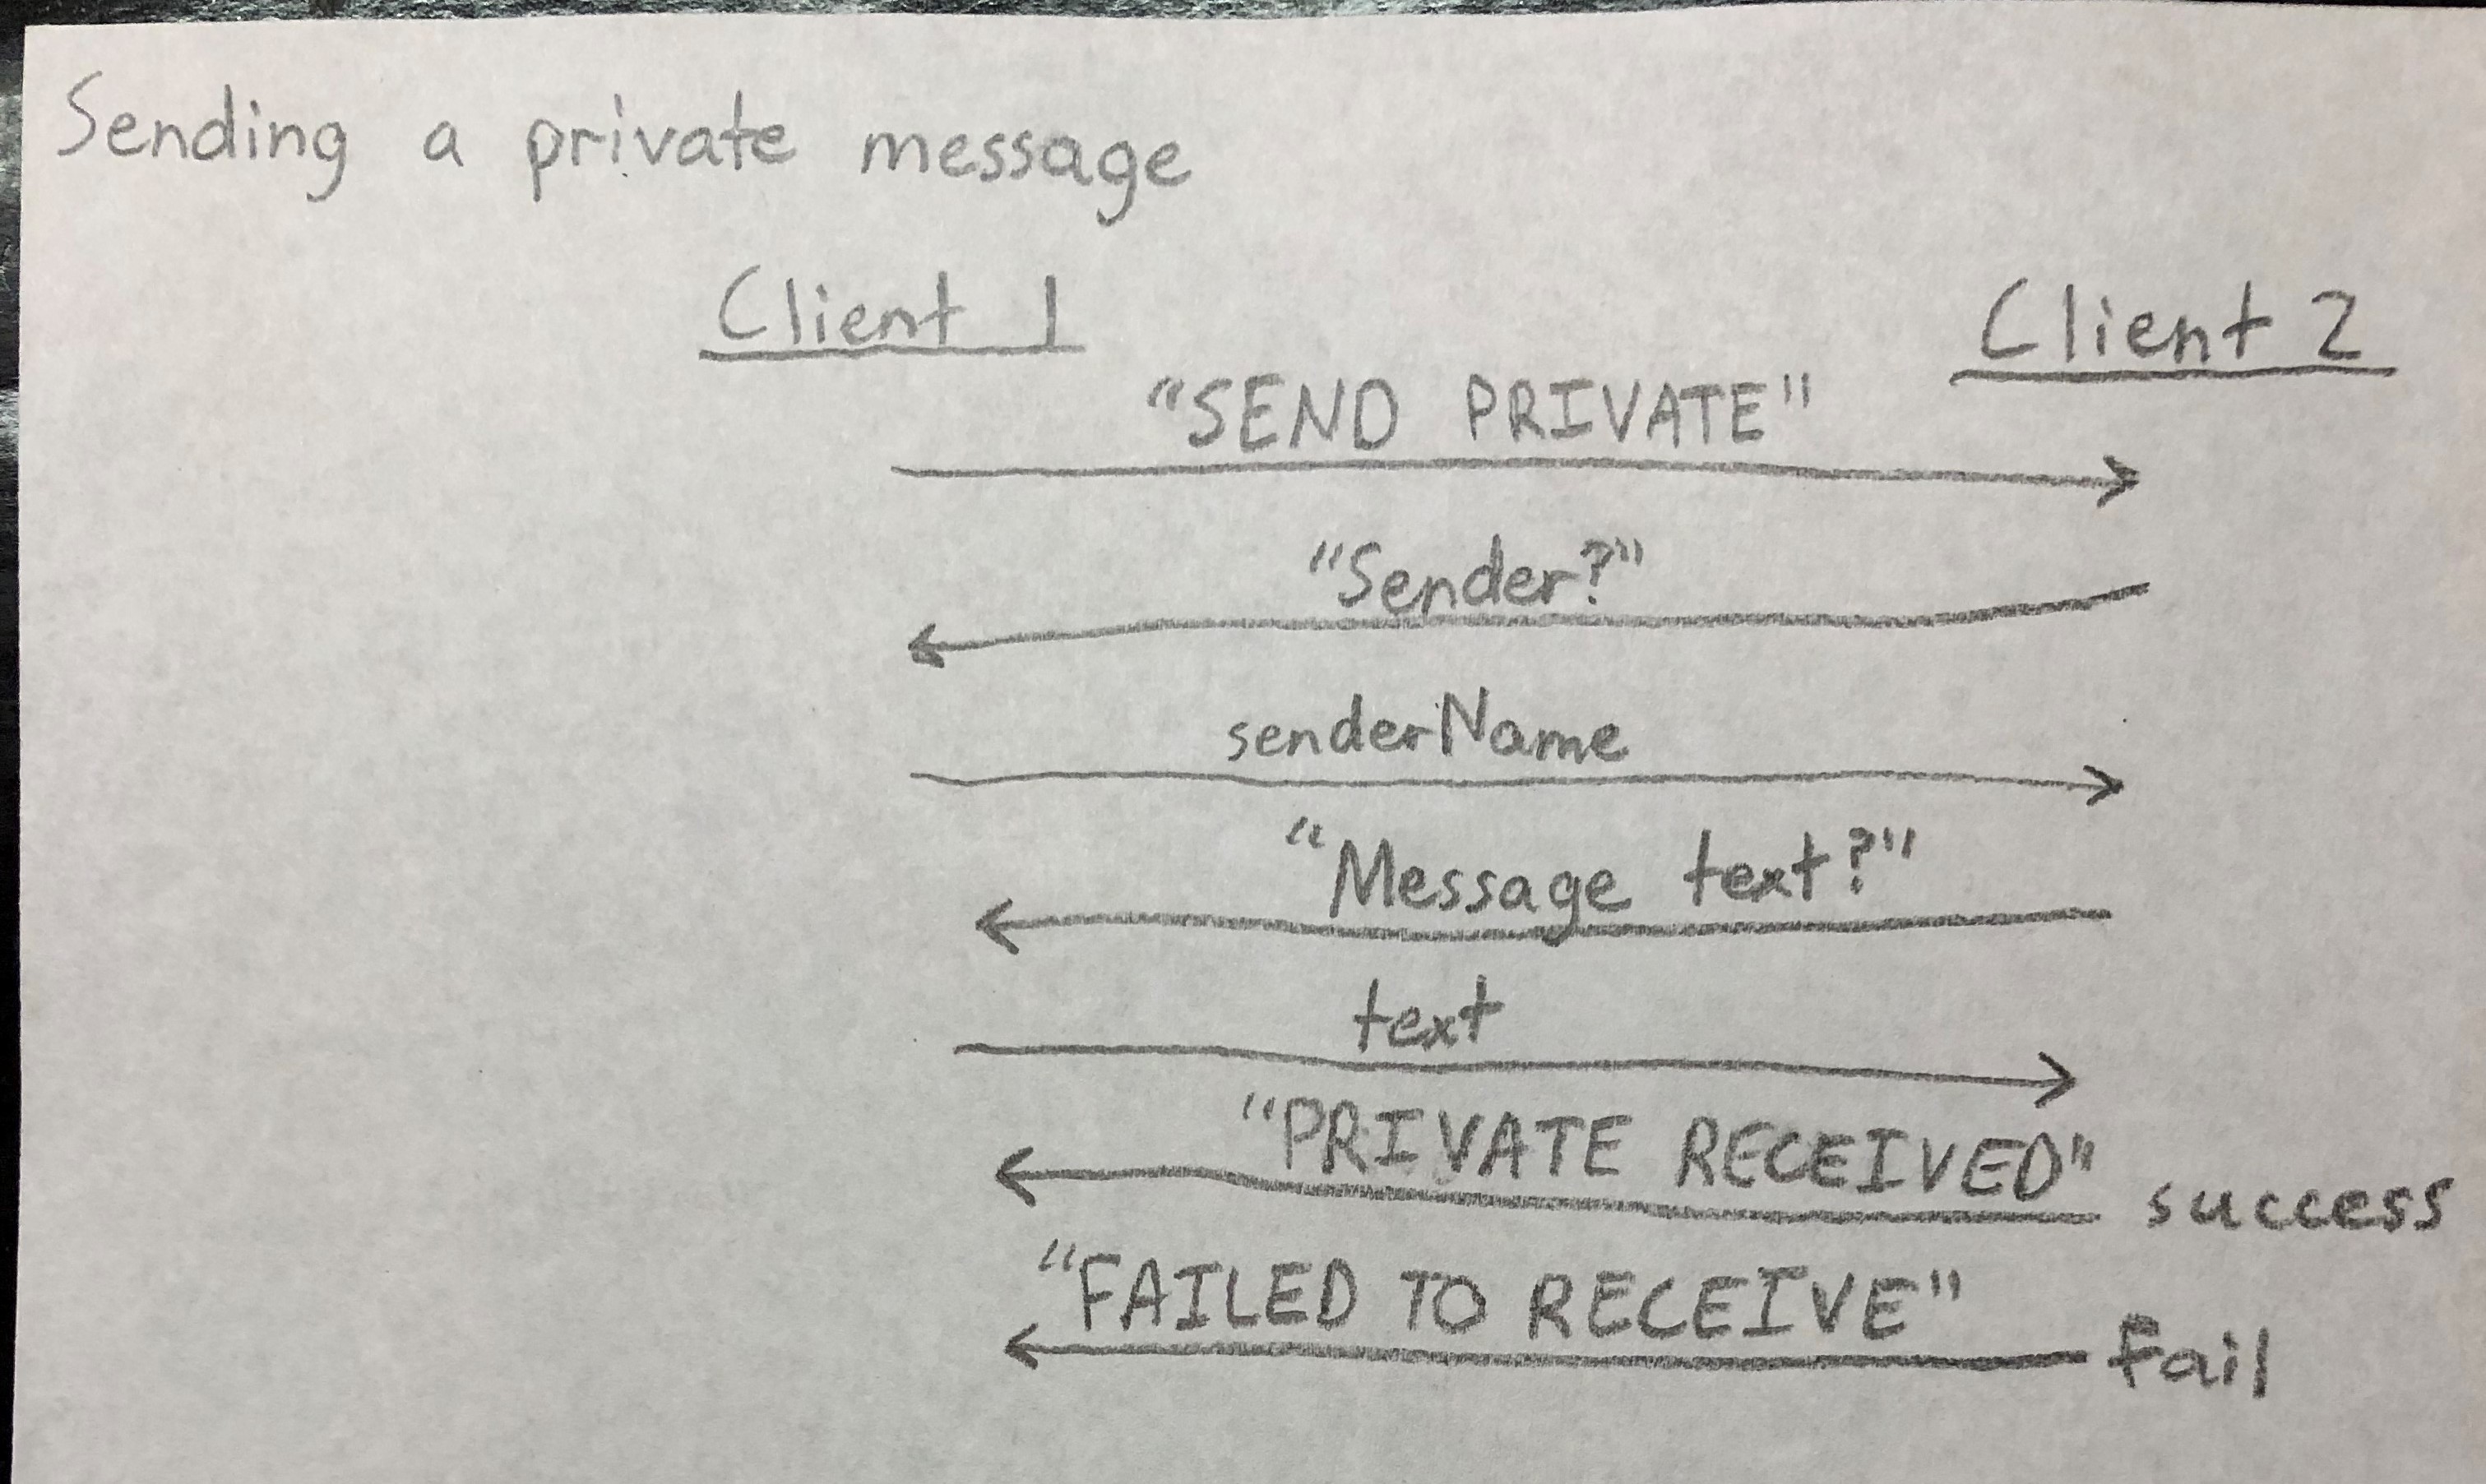 Sending a private message
Client 1 Client 2
"SEND PRIVATE"
"Sender?"
senderName
"Message text?"
text
"PRIVATE RECEIVED" success
"FAILED TO RECEIVE" fail